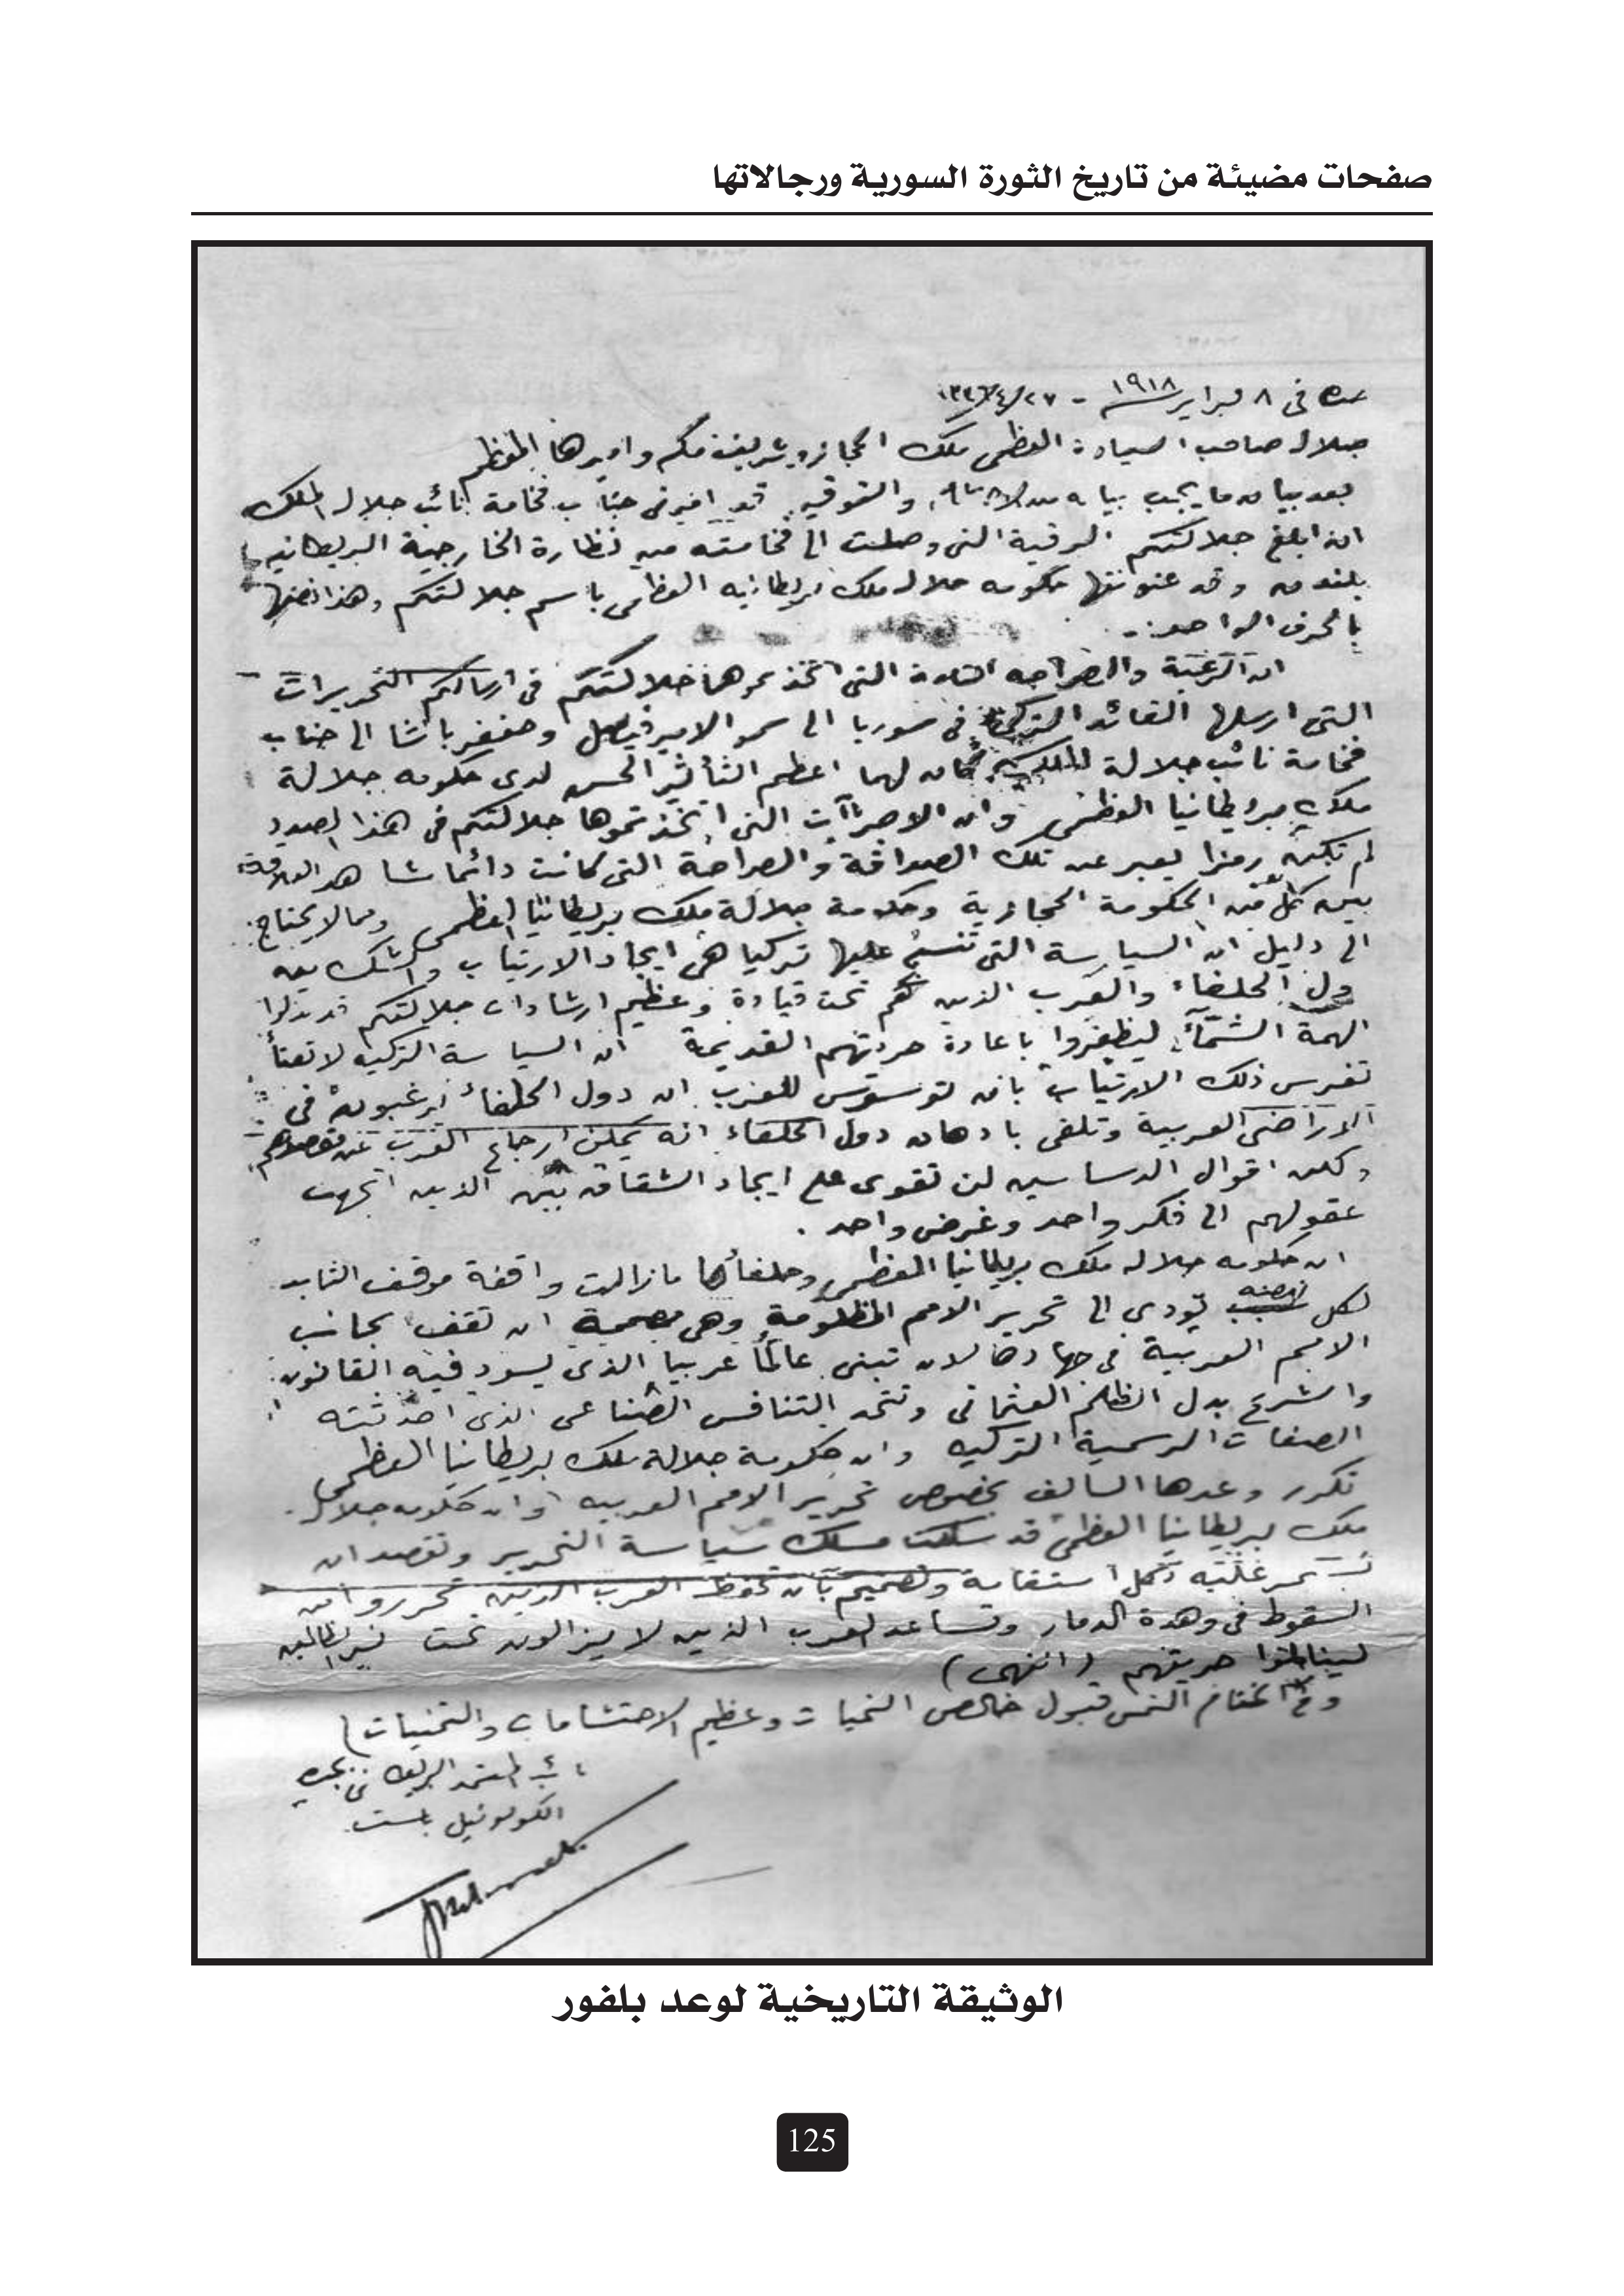 صفحات مضيئة من تاريخ الثورة السورية ورجالاتها
جده في ٨ فبراير ١٩١٨ - ٢٧/٤/١٣٣٦
جلالة صاحب السيادة العظمى ملك الحجاز وشريف مكه واميرها المعظم
بعد بيان ما يجب بيانه من والتوقير قد امرني جناب فخامة نائب جلالة الملك
ان ابلغ جلالتكم البرقية التي وصلت الى فخامته من نظارة الخارجية البريطانيه
بلندن وقد عنونتها حكومه جلالة ملك بريطانيه العظمى باسم جلالتكم وهذا نصها
بالحرف الواحد:-
ان الرغبة والصراحه التامة التي اتخذتموها جلالتكم في ارسالكم التحريرات
التي ارسلها القائد التركي في سوريا الى سمو الامير فيصل وجعفر باشا الى جناب
فخامة نائب جلالة الملك كان لهما اعظم التأثير الحسن لدى حكومه جلالة
ملك بريطانيا العظمى وان الاجراآت التي اتخذتموها جلالتكم في هذا الصدد
لم تكن رمزا يعبر عن تلك الصداقة والصراحة التي كانت دائما شاهد العلاقة
بين كل من الحكومة الحجازية وحكومة جلالة ملك بريطانيا العظمى ومما لا يحتاج
الى دليل ان السياسة التي تنسج عليها تركيا هي ايجاد الارتياب والشك بين
دول الحلفاء والعرب الذين هم تحت قيادة وعظيم ارشادات جلالتكم قد بذلوا
الهمة الشماء ليظفروا باعادة حريتهم القديمة ان السياسة التركيه لا تفتأ
تغرس ذلك الارتياب بان توسوس للعرب ان دول الحلفاء يرغبون في
الاراضي العربية وتلقي باذهان دول الحلفاء انه يمكن ارجاع العرب عن مقصدهم
ولكن اقوال الدساسين لن تقوى على ايجاد الشقاق بين الذين اتجهت
عقولهم الى فكر واحد وغرض واحد .
ان حكومه جلالة ملك بريطانيا العظمى وحلفائها مازالت واقفة موقف الثابت
لكل نهضه تؤدي الى تحرير الامم المظلومة وهي مصممة ان تقف بجانب
الامم العربية في جهادها لان تبني عالماً عربيا الذي يسود فيه القانون
والشرع بدل الظلم العثماني وتتحد التنافس الصناعي الذي احدثته
الصفات الرسمية التركيه وان حكومة جلالة ملك بريطانيا العظمى
تكرر وعدها السالف بخصوص تحرير الامم العربيه وان حكومه جلالة
ملك بريطانيا العظمى قد سلكت مسلك سياسة التحرير وتقصد ان
تستمر عليه بكل استقامة وتصميم بان تحفظ العرب الذين تحرروا من
السقوط في وهدة الدمار وتساعد العرب الذين لا يزالون تحت نير الظالمين
لينالوا حريتهم (انتهى)
وفي الختام التمس قبول خالص التحيات وعظيم الاحتشامات والتمنيات)
نائب المعتمد البريطاني بجده
الكولونيل باست
الوثيقة التاريخية لوعد بلفور
125